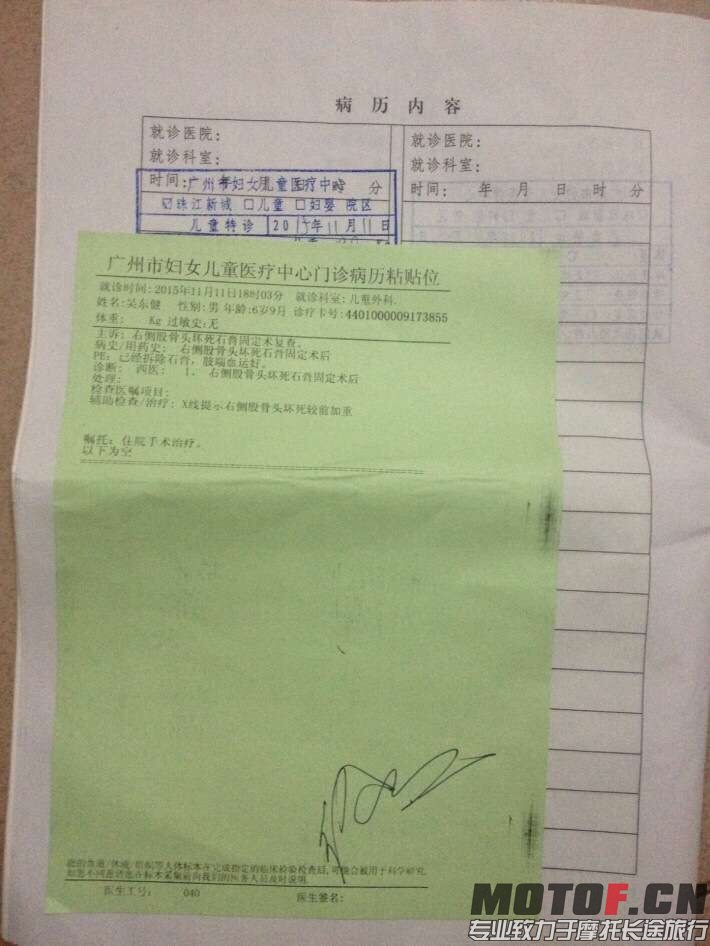 病历内容
就诊医院：
就诊科室：
时间：广州市妇女儿童医疗中心 分
☑珠江新城 □儿童 □妇婴 院区
儿童特诊 2015年11月11日
就诊医院：
就诊科室：
时间： 年 月 日 时 分
广州市妇女儿童医疗中心门诊病历粘贴位
就诊时间：2015年11月11日18时03分 就诊科室：儿童外科
姓名：吴东健 性别：男 年龄：6岁9月 诊疗卡号：4401000009173855
体重： Kg 过敏史：无
主诉：右侧股骨头坏死石膏固定术复查。
病史/用药史： 右侧股骨头坏死石膏固定术后
PE：已经拆除石膏，肢端血运好。
诊断： 西医： 1、 右侧股骨头坏死石膏固定术后
处理：
检查医嘱项目：
辅助检查/治疗：X线提示右侧股骨头坏死较前加重
嘱托：住院手术治疗。
以下为空
您的血液/体液/组织等人体标本在完成指定的临床检验检查后，可能会被用于科学研究，
如您不同意请您在标本采集前向我们的医务人员及时说明。
医生工号： 040 医生签名：
MOTOF.CN
专业致力于摩托长途旅行